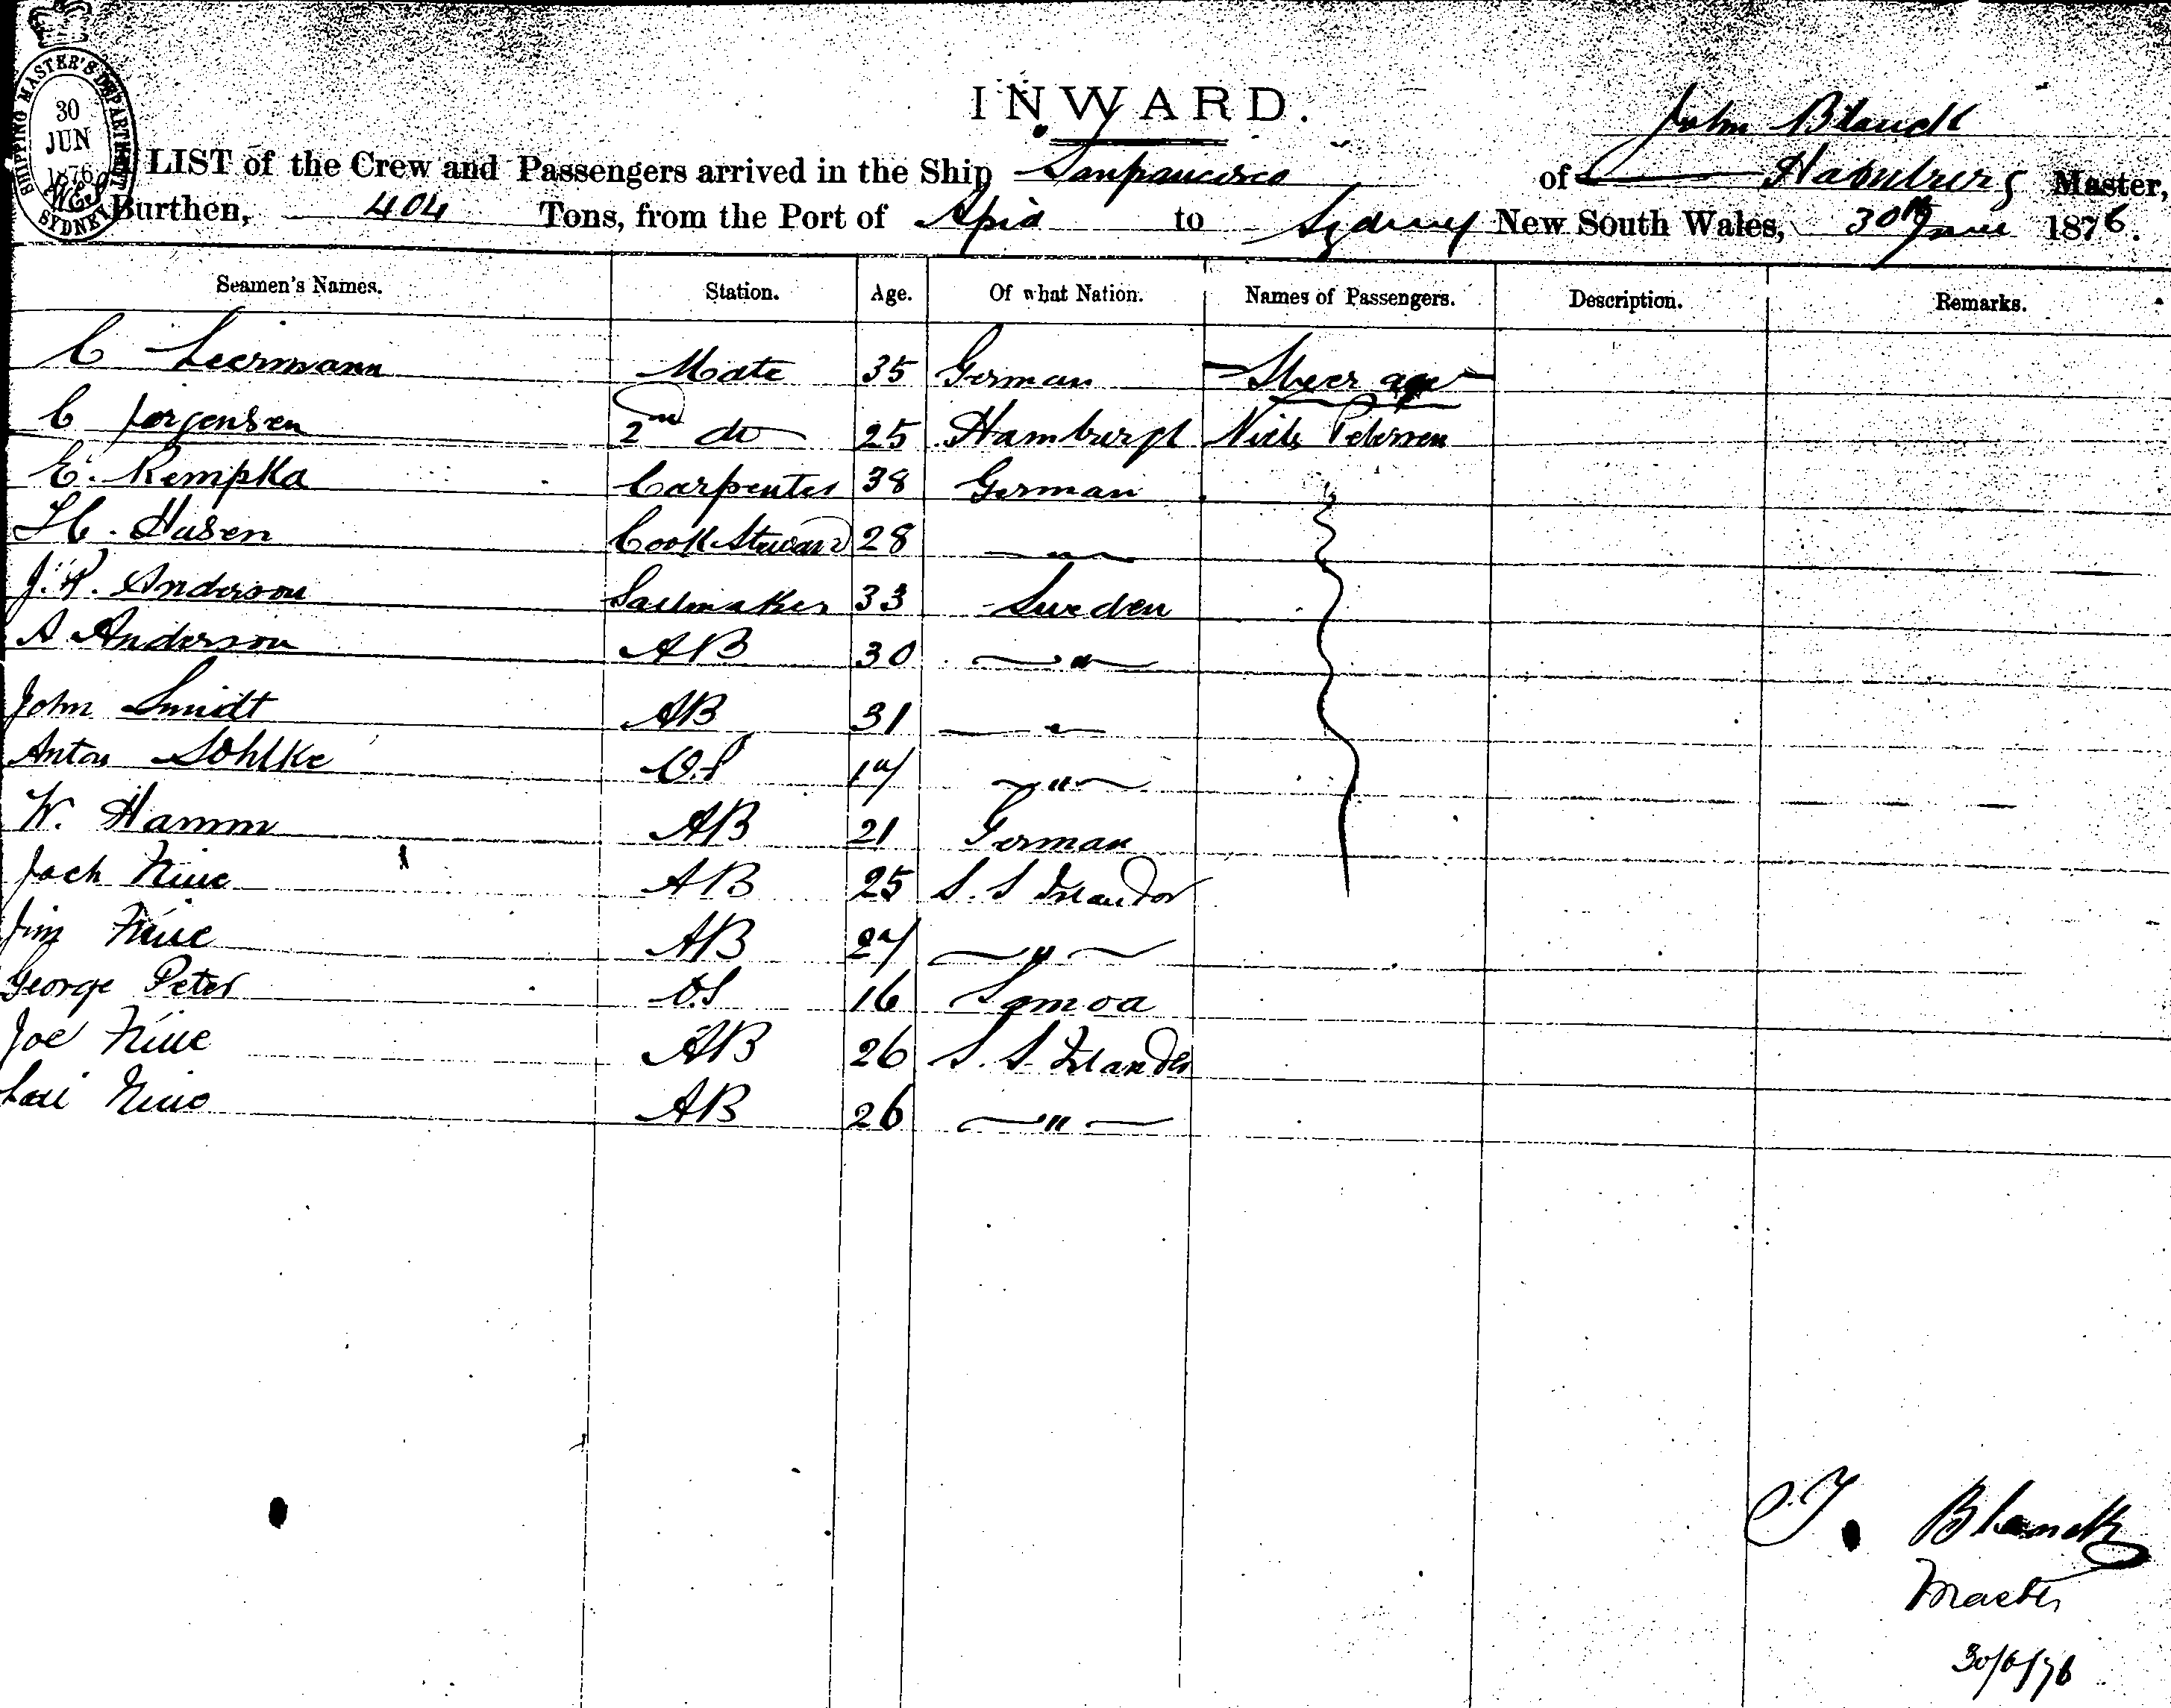 SHIPPING MASTER'S DEPARTMENT
30
JUN
1876
SYDNEY
INWARD.
John Blanck
LIST of the Crew and Passengers arrived in the Ship Sanfrancisco of Hamburg Master,
Burthen, 404 Tons, from the Port of Apia to Sydney New South Wales, 30th June 1876.
Seamen's Names. Station. Age. Of what Nation. Names of Passengers. Description. Remarks.
C Leermann Mate 35 German Steerage
C Jorgensen 2nd do 25 Hamburgh Niels Petersen
E. Kempka Carpenter 38 German
H. Hasen Cook Steward 28 — " —
J. P. Anderson Sailmaker 33 Sweden
A Anderson AB 30 — " —
John Smidt AB 31 — " —
Anton Sohlke O.S 17 — " —
W. Hamm AB 21 German
Jack Niue AB 25 S. S Islander
Jim Niue AB 27 — " —
George Peter O.S 16 Samoa
Joe Niue AB 26 S. S. Islander
Niue AB 26 — " —
J. Blanck
Master
30/6/76